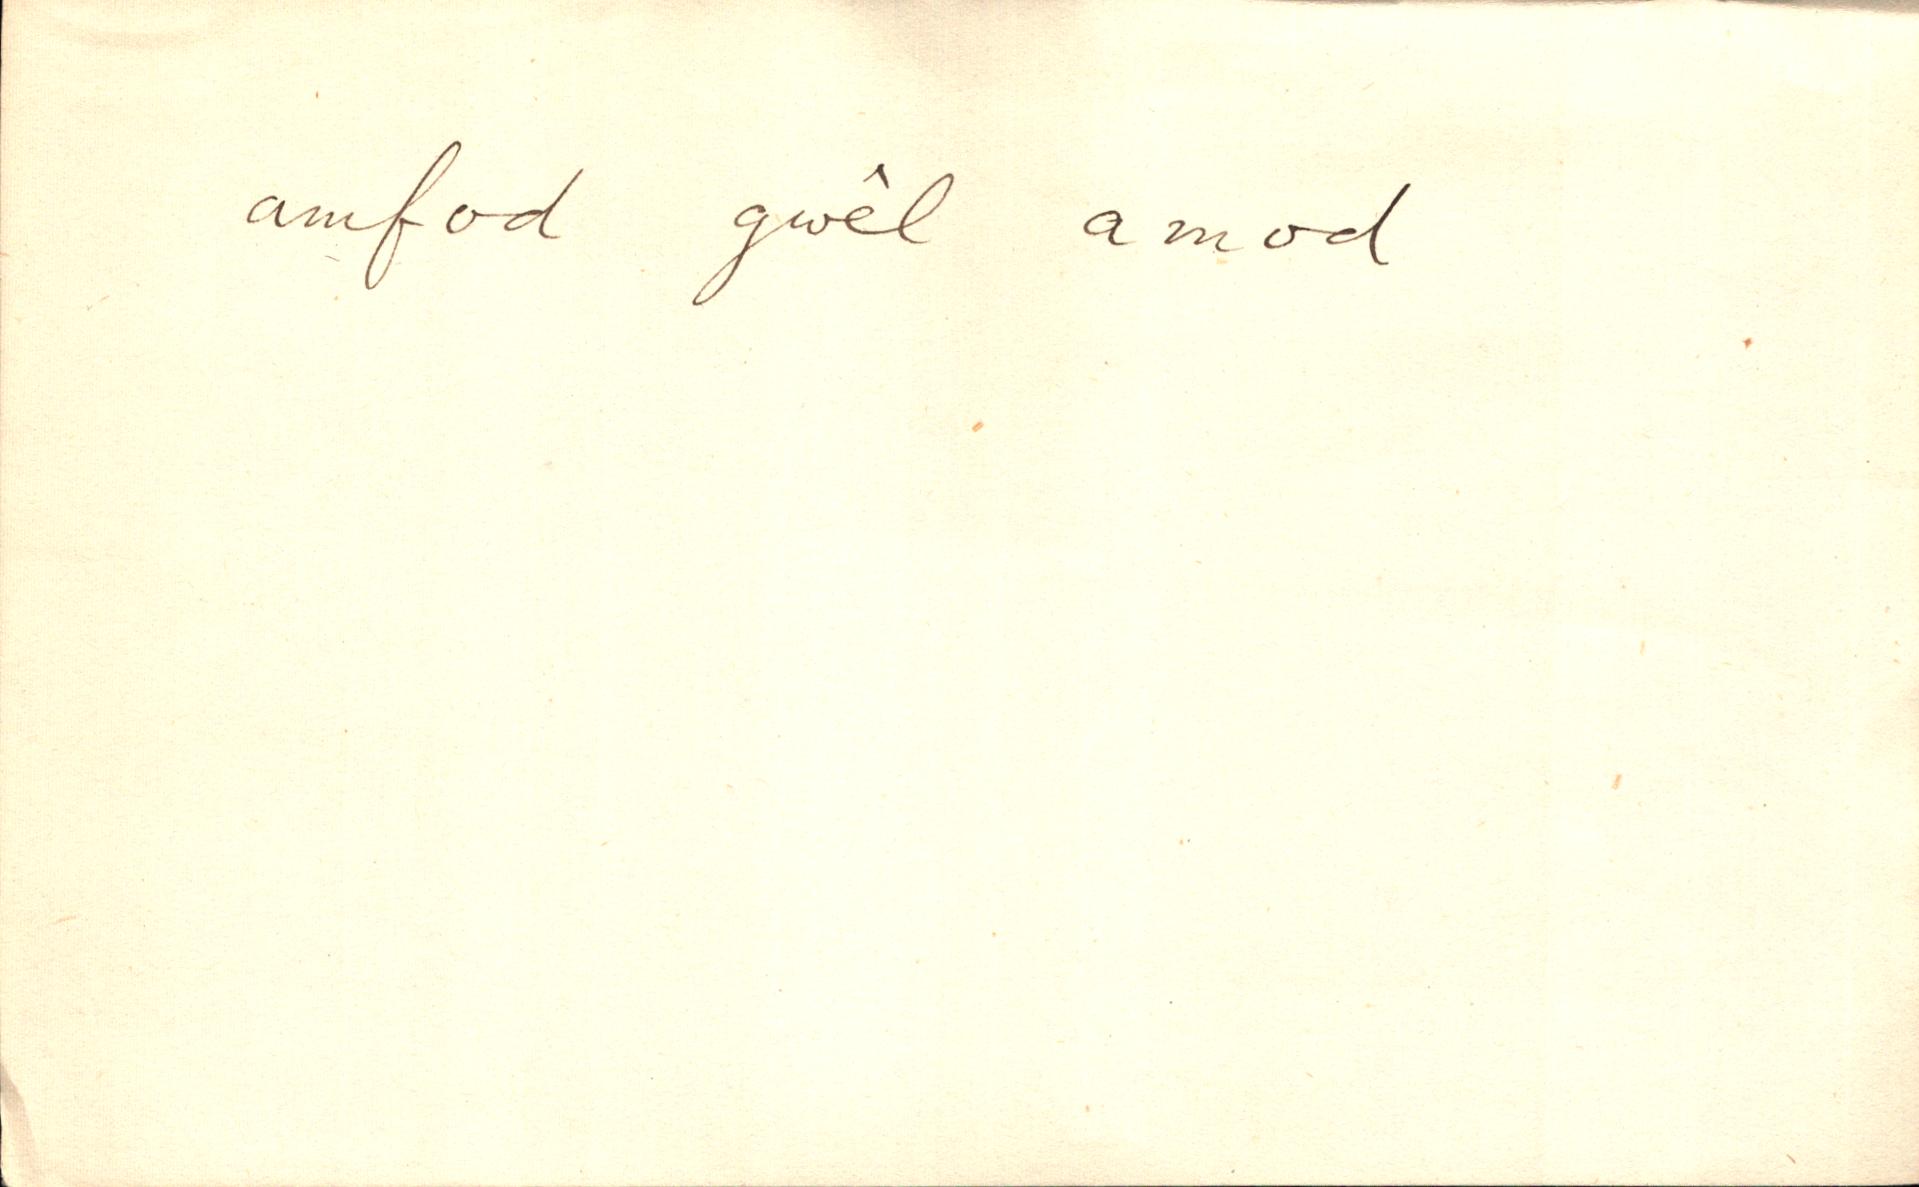 amfod gwêl amod